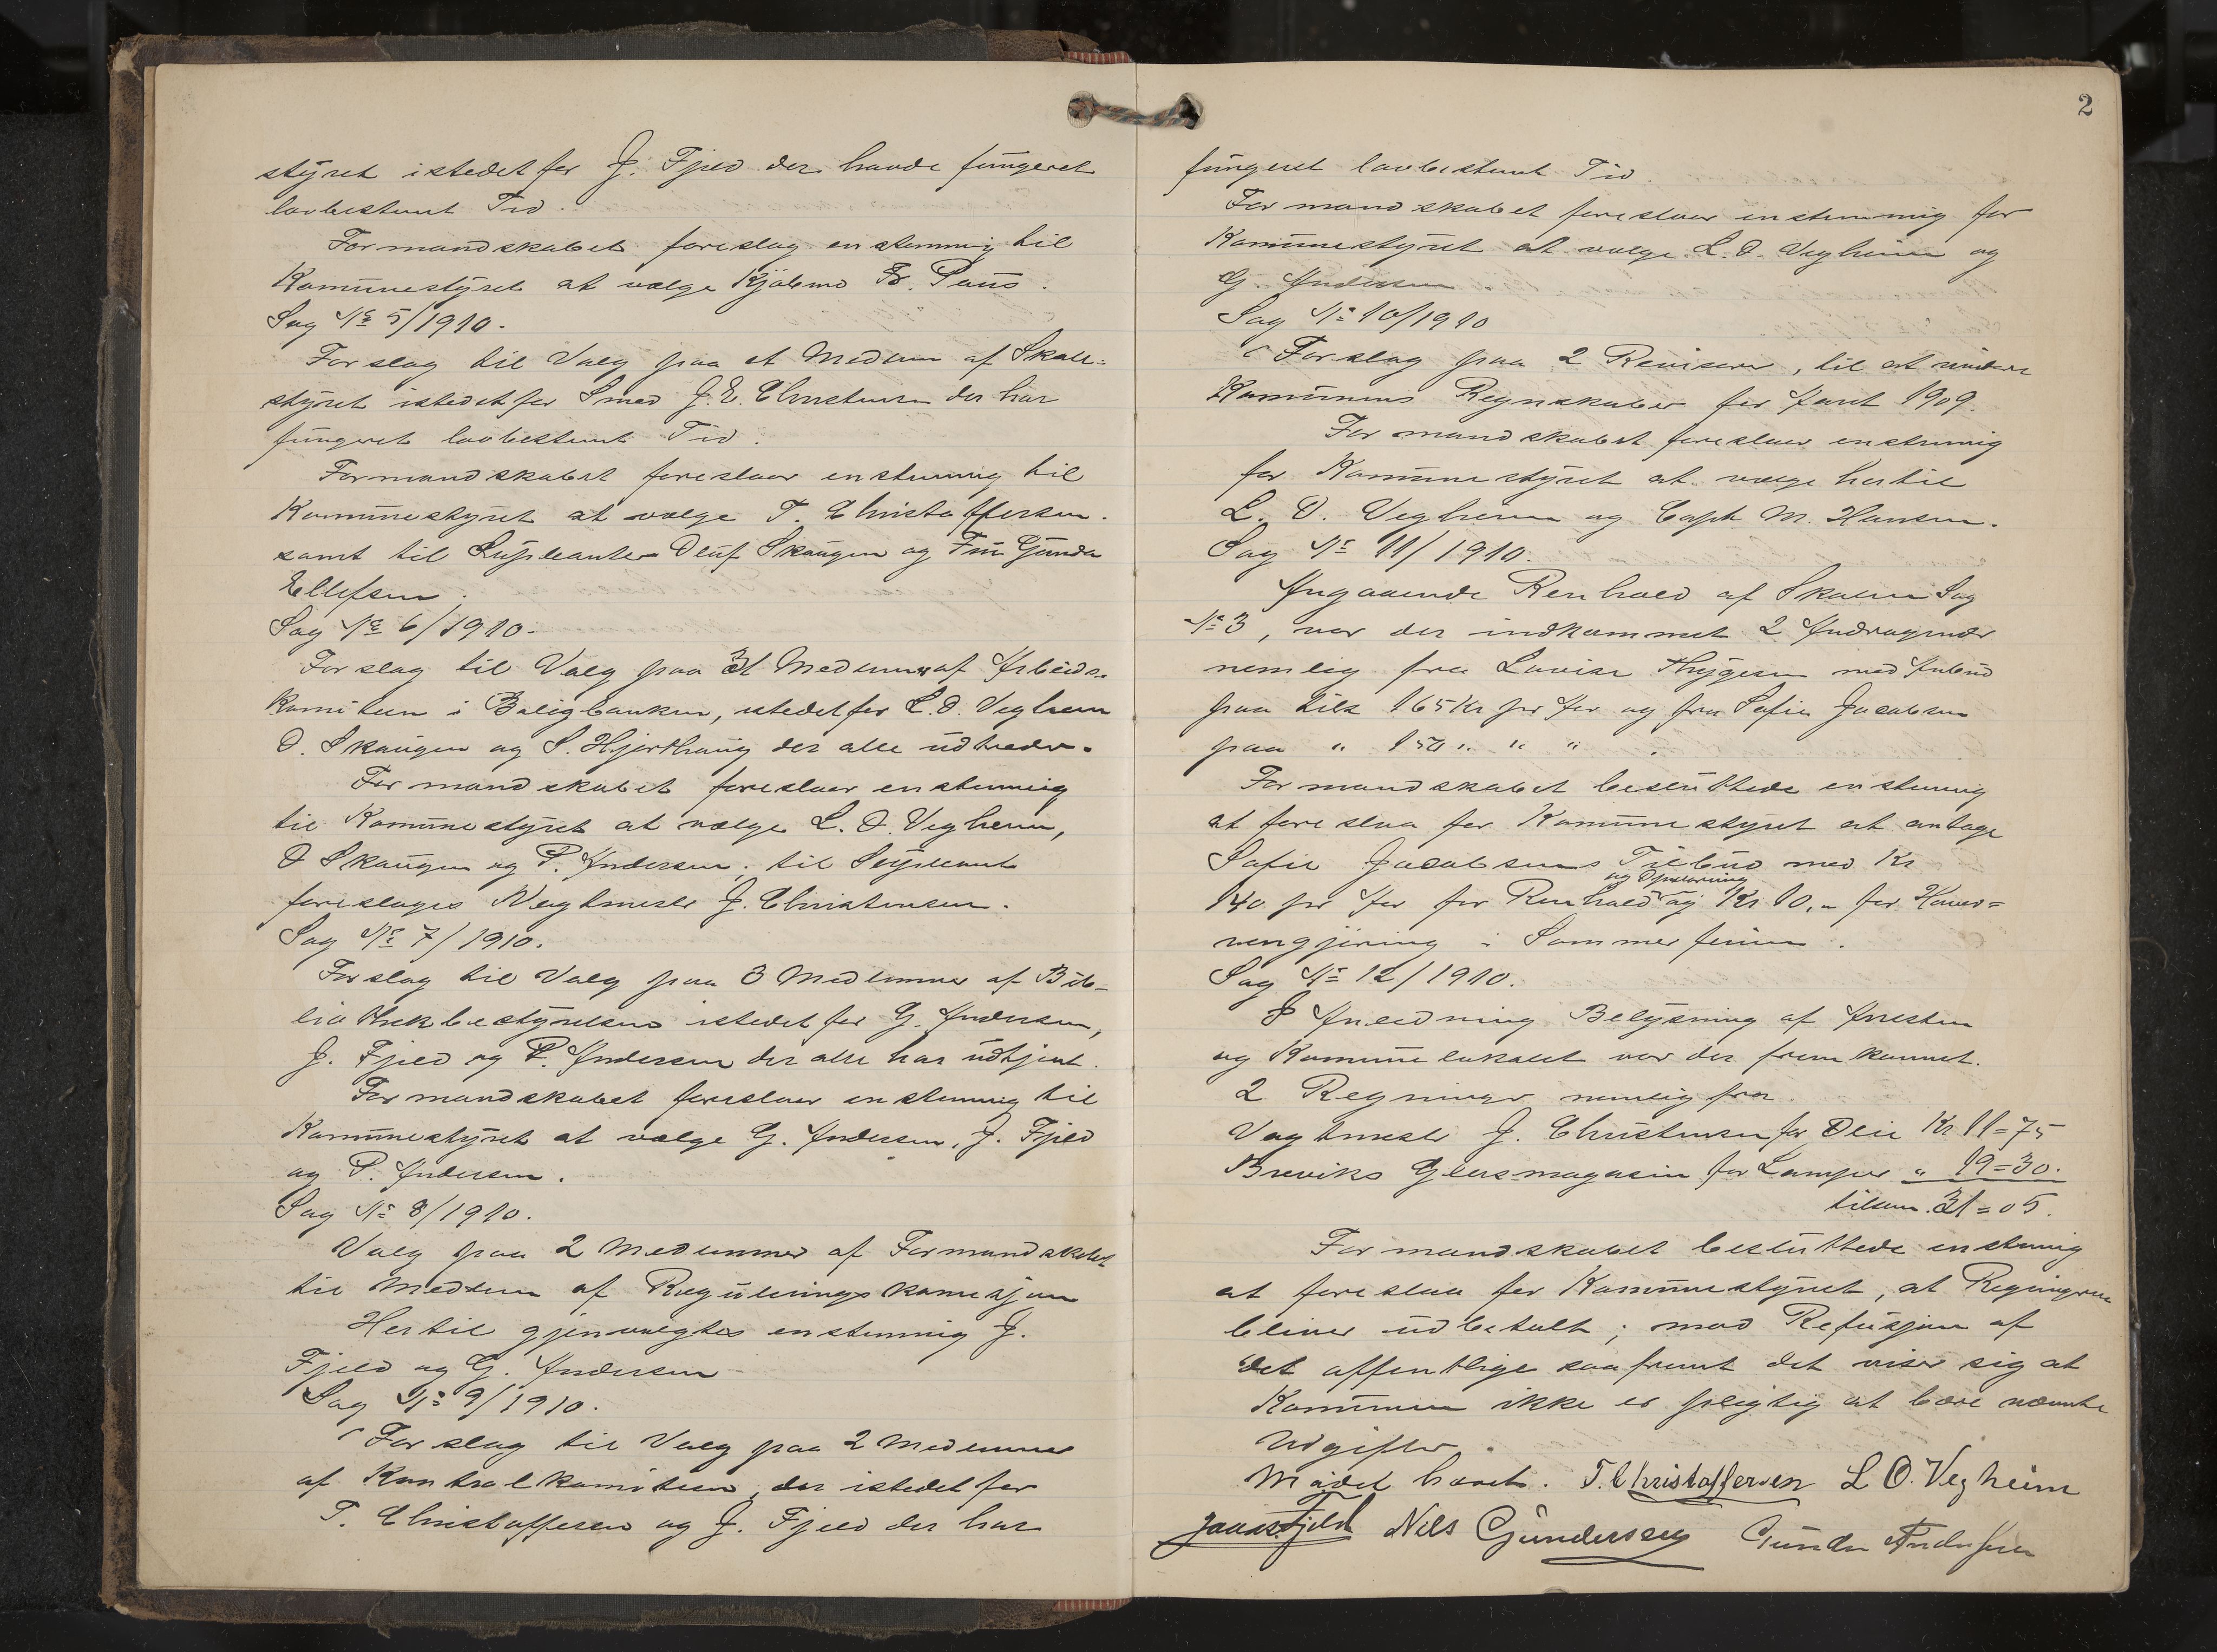 styret istedet for J. Fjeld der havde fungeret
lovbestemt Tid.
Formandskabet foreslog enstemmig til
Kommunestyret at vælge Kjøbmd Fr. Paus.
Sag No 5/1910.
Forslag til Valg paa et Medlem af Skole-
styret istedetfor Smed J. E. Christensen der har
fungeret lovbestemt Tid.
Formandskabet foreslaar enstemmig til
Kommunestyret at vælge T. Christoffersen.
samt til Supleanter Oluf Skaugen og Fru Gunda
Ellefsen.
Sag No 6/1910.
Forslag til Valg paa 3 Medlemmer af Arbeids-
komiteen i Boligbanken, istedetfor L. O. Vegheim
O. Skaugen og S. Hjorthaug der alle udtræder.
Formandskabet foreslaar enstemmig
til Kommunestyret at vælge L. O. Vegheim,
O Skaugen og P. Andersen, til Supleant
foreslages Vagtmester J. Christensen.
Sag No 7/1910.
Forslag til Valg paa 3 Medlemmer af Bib-
liothekbestyrelsen istedet for G. Andersen,
J. Fjeld og P. Andersen der alle har udtjent.
Formandskabet foreslaar enstemmig til
Kommunestyret at vælge G. Andersen, J. Fjeld
og P. Andersen.
Sag No 8/1910.
Valg paa 2 Medlemmer af Formandskabet
til Medlem af Reguleringskomisjon
Hertil gjenvalgtes enstemmig J.
Fjeld og G. Andersen
Sag No 9/1910.
Forslag til Valg paa 2 Medlemmer
af Kontrolkomiteen, der istedet for
T. Christoffersen og J. Fjeld der har
2
fungeret lovbestemt Tid.
Formandskabet foreslaar enstemmig for
Kommunestyret at vælge L. O. Vegheim og
G. Andersen.
Sag No 10/1910
Forslag paa 2 Revisorer, til at revidere
Kommunens Regnskaber for Aaret 1909.
Formandskabet foreslaar enstemmig
for Kommunestyret at vælge hertil
L. O. Vegheim og Capt M. Hansen.
Sag No 11/1910.
Angaaende Renhold af Skolen Sag
No 3, var der indkommet 2 Andragender
nemlig fra Lovise Thygesen med Anbud
paa tils 165 Kr pr Aar og fra Sofie Jacobsen
paa " 150 " " "
Formandskabet besluttede enstemmig
at foreslaa for Kommunestyret at antage
Sofie Jacobsens Tilbud med Kr
og Opvarming
140 pr Aar for Renhold og Kr 10,- for Hoved-
rengjøring i Sommerferien.
Sag No 12/1910.
I Anledning Belysning af Arresten
og Kommunelokalet var der fremkommet.
2 Regninger nemlig fra
Vagtmester J. Christensen for Olie Kr 11=75
Breviks Glasmagasin for Lamper " 19=30.
tilsam. 31=05.
Formandskabet besluttede enstemmig
at foreslaa for Kommunestyret, at Regningerne
bliver udbetalt; mod Refusjon af
det offentlige saafremt det viser sig at
Kommunen ikke er pligtig at bære nævnte
Udgifter.
Mødet hævet. T. Christoffersen L O. Vegheim
Jonas Fjeld Nils Gundersen Gunder Andersen